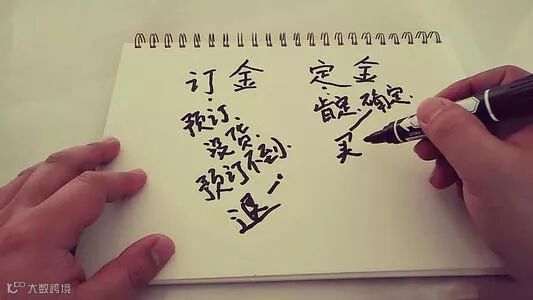 订金 定金
预订. 肯定.确定.
没货. 买
预订不到.
退
大数跨境